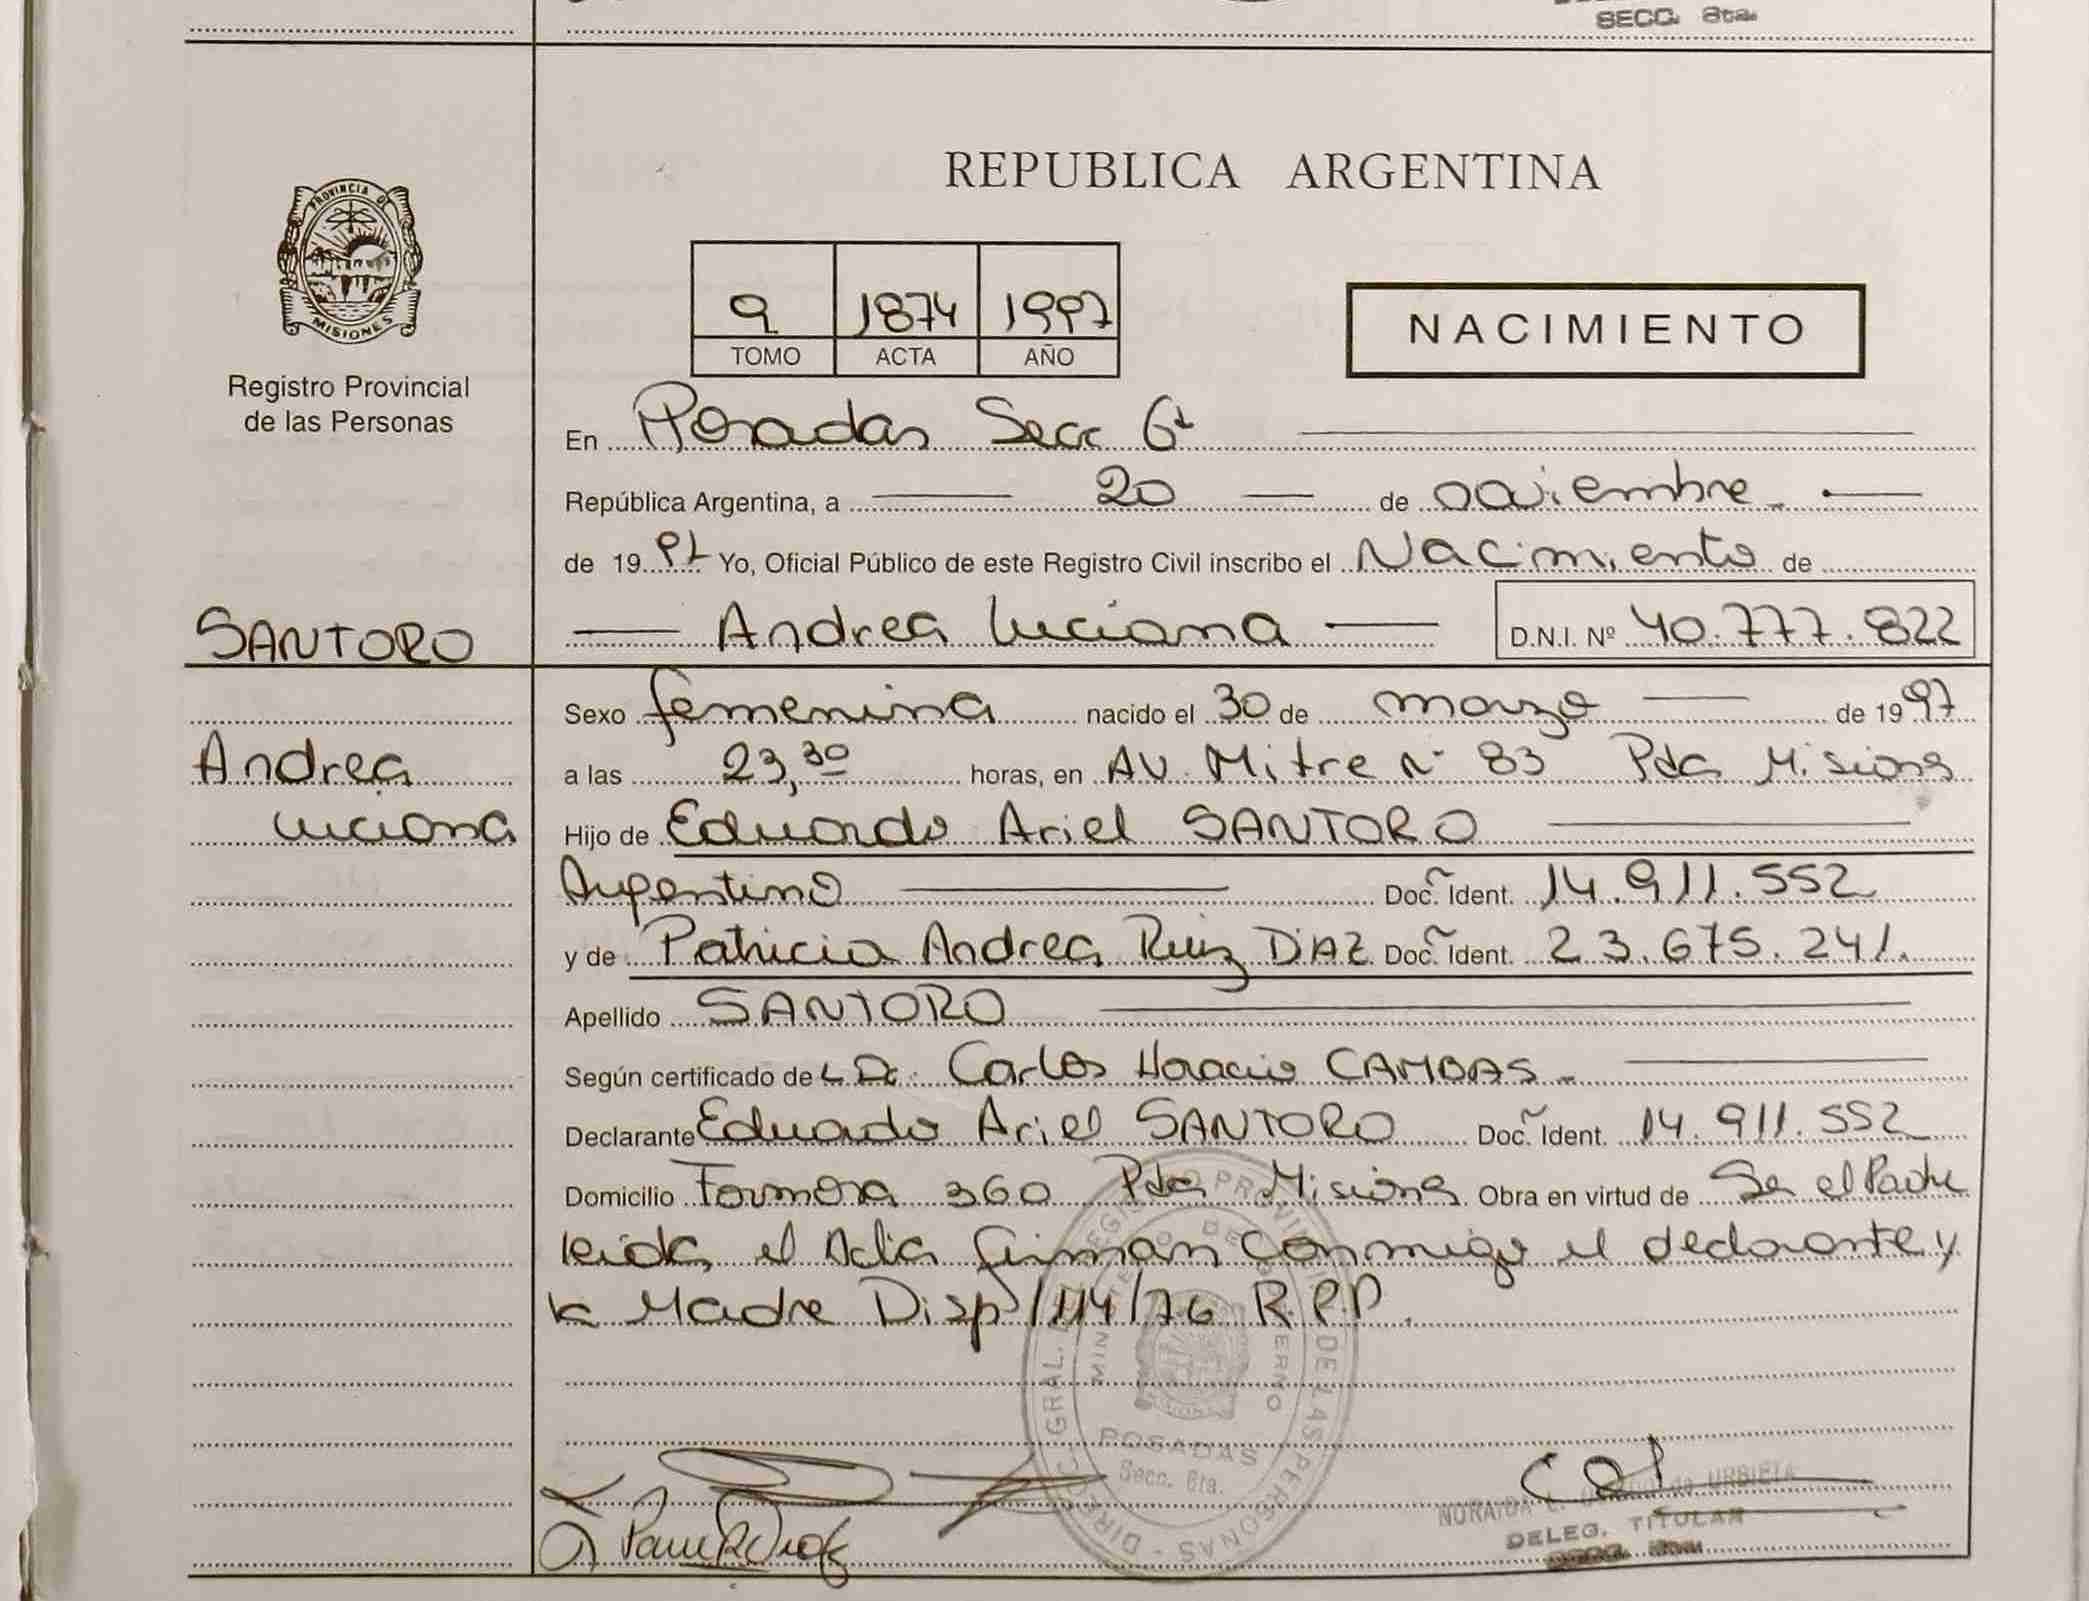 SECC. 6ta.
REPUBLICA ARGENTINA
PROVINCIA DE
MISIONES
Registro Provincial
de las Personas
9 1874 1997
TOMO ACTA AÑO
NACIMIENTO
En Posadas Secc 6ta
República Argentina, a 20 de noviembre
de 1997 Yo, Oficial Público de este Registro Civil inscribo el Nacimiento de
SANTORO
Andrea Luciana D.N.I. Nº 40.777.822
Andrea
Luciana
Sexo femenina nacido el 30 de marzo de 1997
a las 23,30 horas, en AV. Mitre Nº 83 Pdas Misiones
Hijo de Eduardo Ariel SANTORO
Argentino Doc. Ident. 14.911.552
y de Patricia Andrea Ruiz DIAZ Doc. Ident. 23.675.241.
Apellido SANTORO
Según certificado de L Dr. Carlos Horacio CAMBAS.
Declarante Eduardo Ariel SANTORO Doc. Ident. 14.911.552
Domicilio Formosa 360 Pdas Misiones Obra en virtud de Ser el Padre
leida el Acta firman conmigo el declarante y
la Madre Disp 114/76 R.P.P.
DIRECC. GRAL. DEL REGISTRO PROVINCIAL DE LAS PERSONAS
MINISTERIO DE GOBIERNO
POSADAS
Secc. 6ta.
URBIETA
DELEG. TITULAR